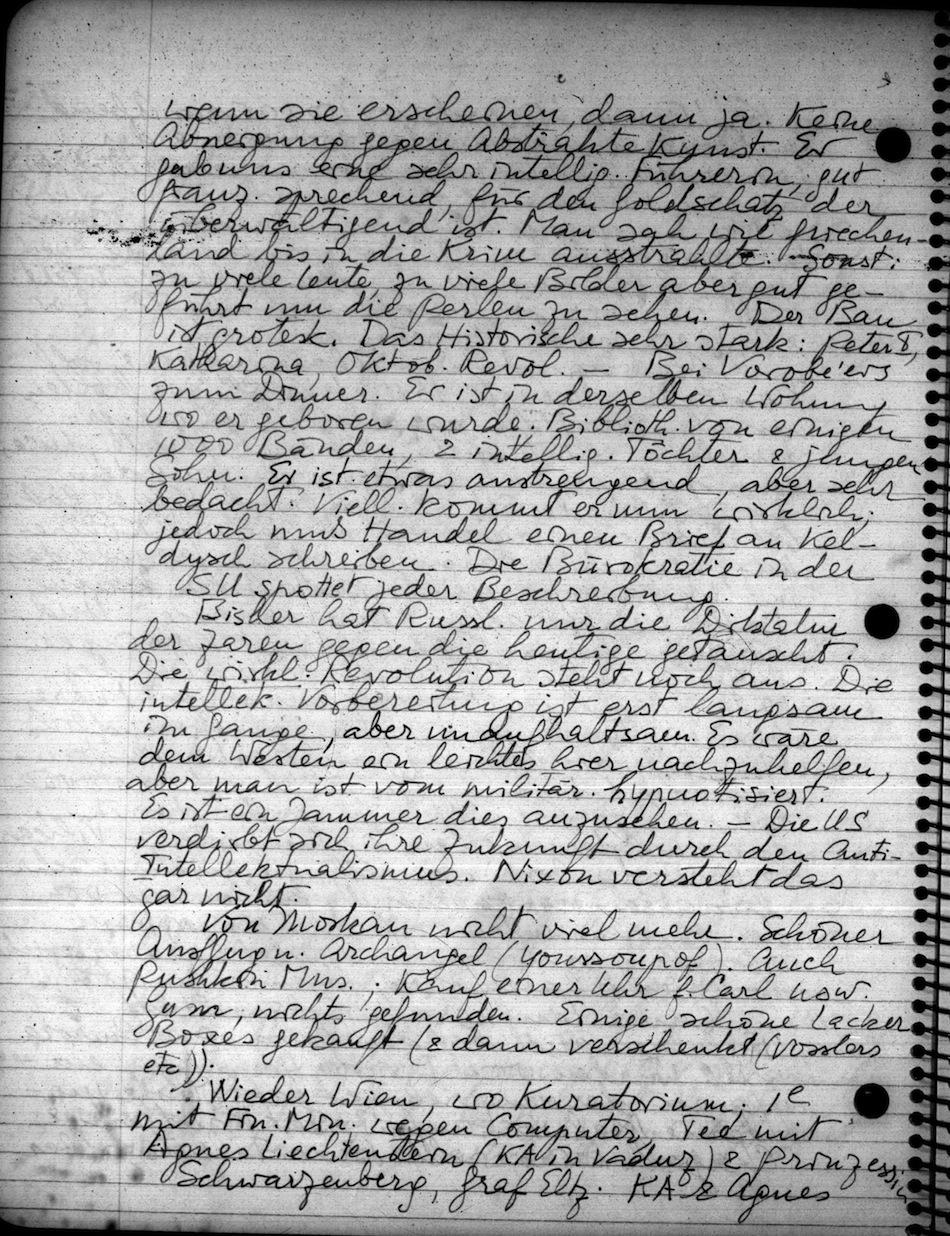 wenn sie erscheinen, dann ja. Keine
Abneigung gegen Abstrakte Kunst. Er
gab uns eine sehr intellig. Führerin, gut
franz. sprechend, für den Goldschatz der
überwältigend ist. Man sah wie Griechen-
land bis in die Krim ausstrahlte. Sonst:
zu viele Leute, zu viele Bilder aber gut ge-
führt um die Perlen zu sehen. Der Bau
ist grotesk. Das Historische sehr stark: Peter I,
Katharina, Oktob. Revol. – Bei Vorobe'ers
zum Dinner. Er ist in derselben Wohnung
wo er geboren wurde. Biblioth. von einigen
1000 Bänden, 2 intellig. Töchter & jungen
Sohn. Er ist etwas anstrengend, aber sehr
bedacht. Viell. kommt er nun wirklich;
jedoch muss Handel einen Brief an Kel-
dysch schreiben. Die Bürokratie in der
SU spottet jeder Beschreibung.
Bisher hat Russl. nur die Diktatur
der Zaren gegen die heutige getauscht.
Die wirkl. Revolution steht noch aus. Die
intellek. Vorbereitung ist erst langsam
im Gange, aber unaufhaltsam. Es wäre
dem Westen ein leichtes hier nachzuhelfen,
aber man ist vom militär. hypnotisiert.
Es ist ein Jammer dies anzusehen. – Die US
verdirbt sich ihre Zukunft durch den Anti-
Intellektualismus. Nixon versteht das
gar nicht.
Von Moskau nicht viel mehr. Schöner
Ausflug n. Archangel (Youssoupof). Auch
Pushkin Mus.; Kauf einer Uhr f. Carl usw.
Gum, nichts gefunden. Einige schöne Lacker
Boxes gekauft (& dann verschenkt (Vosslers
etc)).
Wieder Wien, wo Kuratorium; 1e
mit Fin. Min. wegen Computer, Tee mit
Agnes Liechtenstein (KA in Vaduz) & Prinzessin
Schwarzenberg, Graf Eltz. KA & Agnes